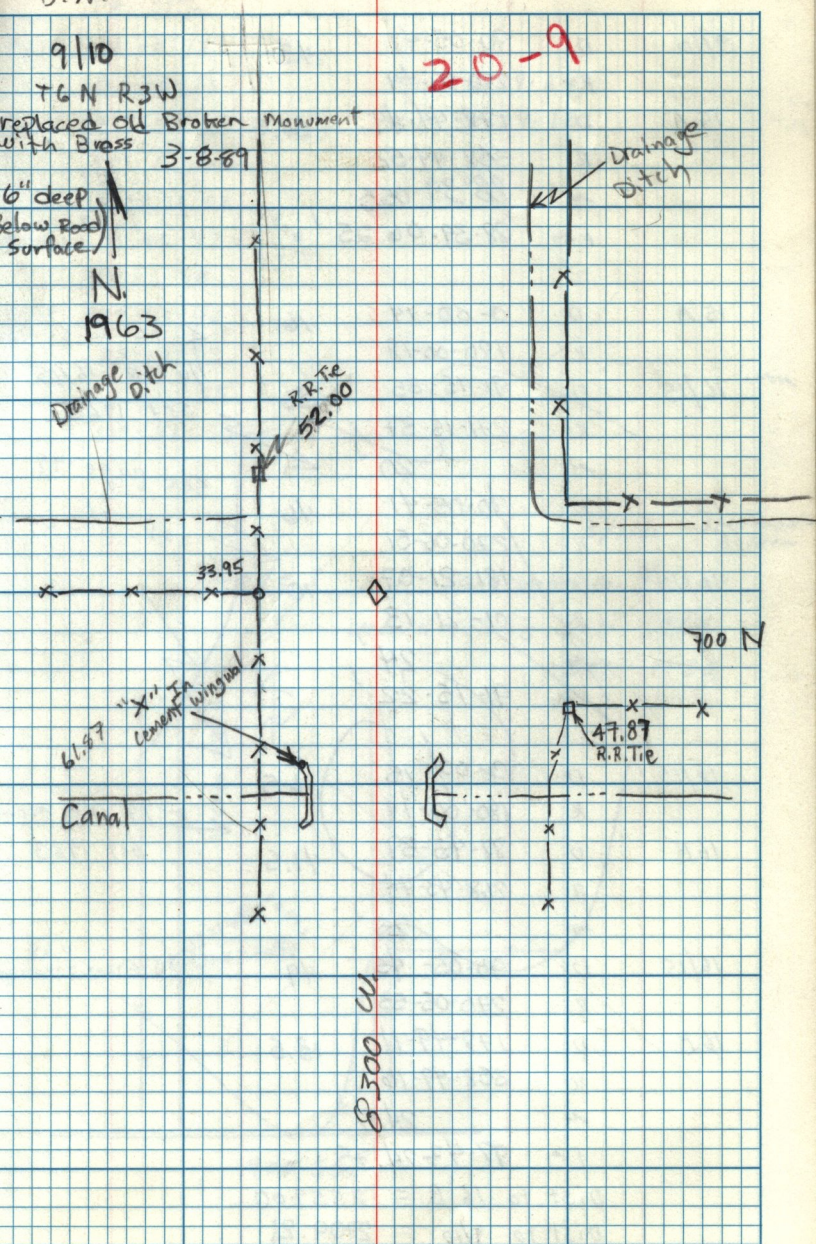 9/10
20-9
T6N R3W
replaced Old Broken Monument
with Brass 3-8-89
6" deep
Below Road)
Surface)
N.
1963
Drainage
Ditch
Drainage Ditch
R.R.Tie
52.00
33.95
700 N
"X" In
Cement Wingwal
61.87
47.87
R.R.Tie
Canal
8300 W.